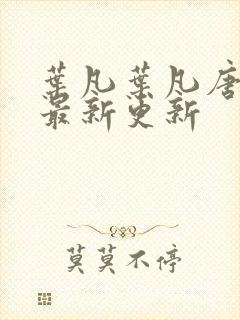 葉凡葉凡唐
最新更新
莫莫不停